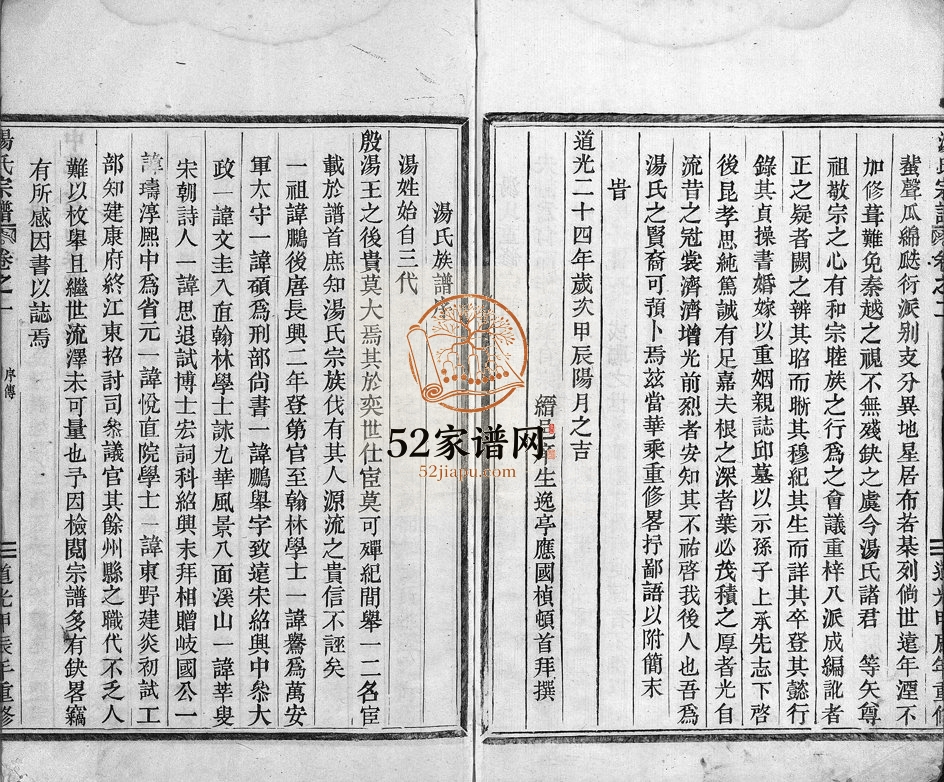 螽聲瓜綿瓞衍派别支分異地星居布若棊列倘世遠年湮不
加修葺難免秦越之視不無殘缺之虞今湯氏諸君 等矢尊
祖敬宗之心有和宗睦族之行爲之會議重梓入派成編訛者
正之疑者闕之辨其昭而晰其穆紀其生而詳其卒登其懿行
錄其貞操書婚嫁以重姻親誌邱墓以示孫子上承先志下啓
後昆孝思純篤誠有足嘉夫根之深者葉必茂積之厚者光自
流昔之冠裳濟濟增光前烈者安知其不祐啓我後人也吾爲
湯氏之賢裔可預卜焉兹當華乘重修畧抒鄙語以附簡末
旹
道光二十四年歲次甲辰陽月之吉
縉邑 生逸亭應國楨頓首拜撰
湯氏宗譜 卷之一
序傳
三
道光甲辰年重修
湯氏族譜序
湯姓始自三代
殷湯王之後貴莫大焉其於奕世仕宦莫可殫紀間舉一二名宦
載於譜首庶知湯氏宗族伐有其人源流之貴信不誣矣
一祖諱鵬後唐長興二年登第官至翰林學士一諱礜爲萬安
軍太守一諱碩爲刑部尙書一諱鵬舉字致遠宋紹興中叅大
政一諱文圭入直翰林學士詠九華風景八面溪山一諱莘叟
宋朝詩人一諱思退試博士宏詞科紹興末拜相贈岐國公一
諱璹淳熙中爲省元一諱悅直院學士一諱東野建炎初試工
部知建康府終江東招討司叅議官其餘州縣之職代不乏人
難以枚舉且繼世流澤未可量也予因檢閱宗譜多有缺畧竊
有所感因書以誌焉
52家谱网
52jiapu.com